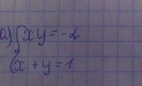 а) { xy = -2
{ x + y = 1